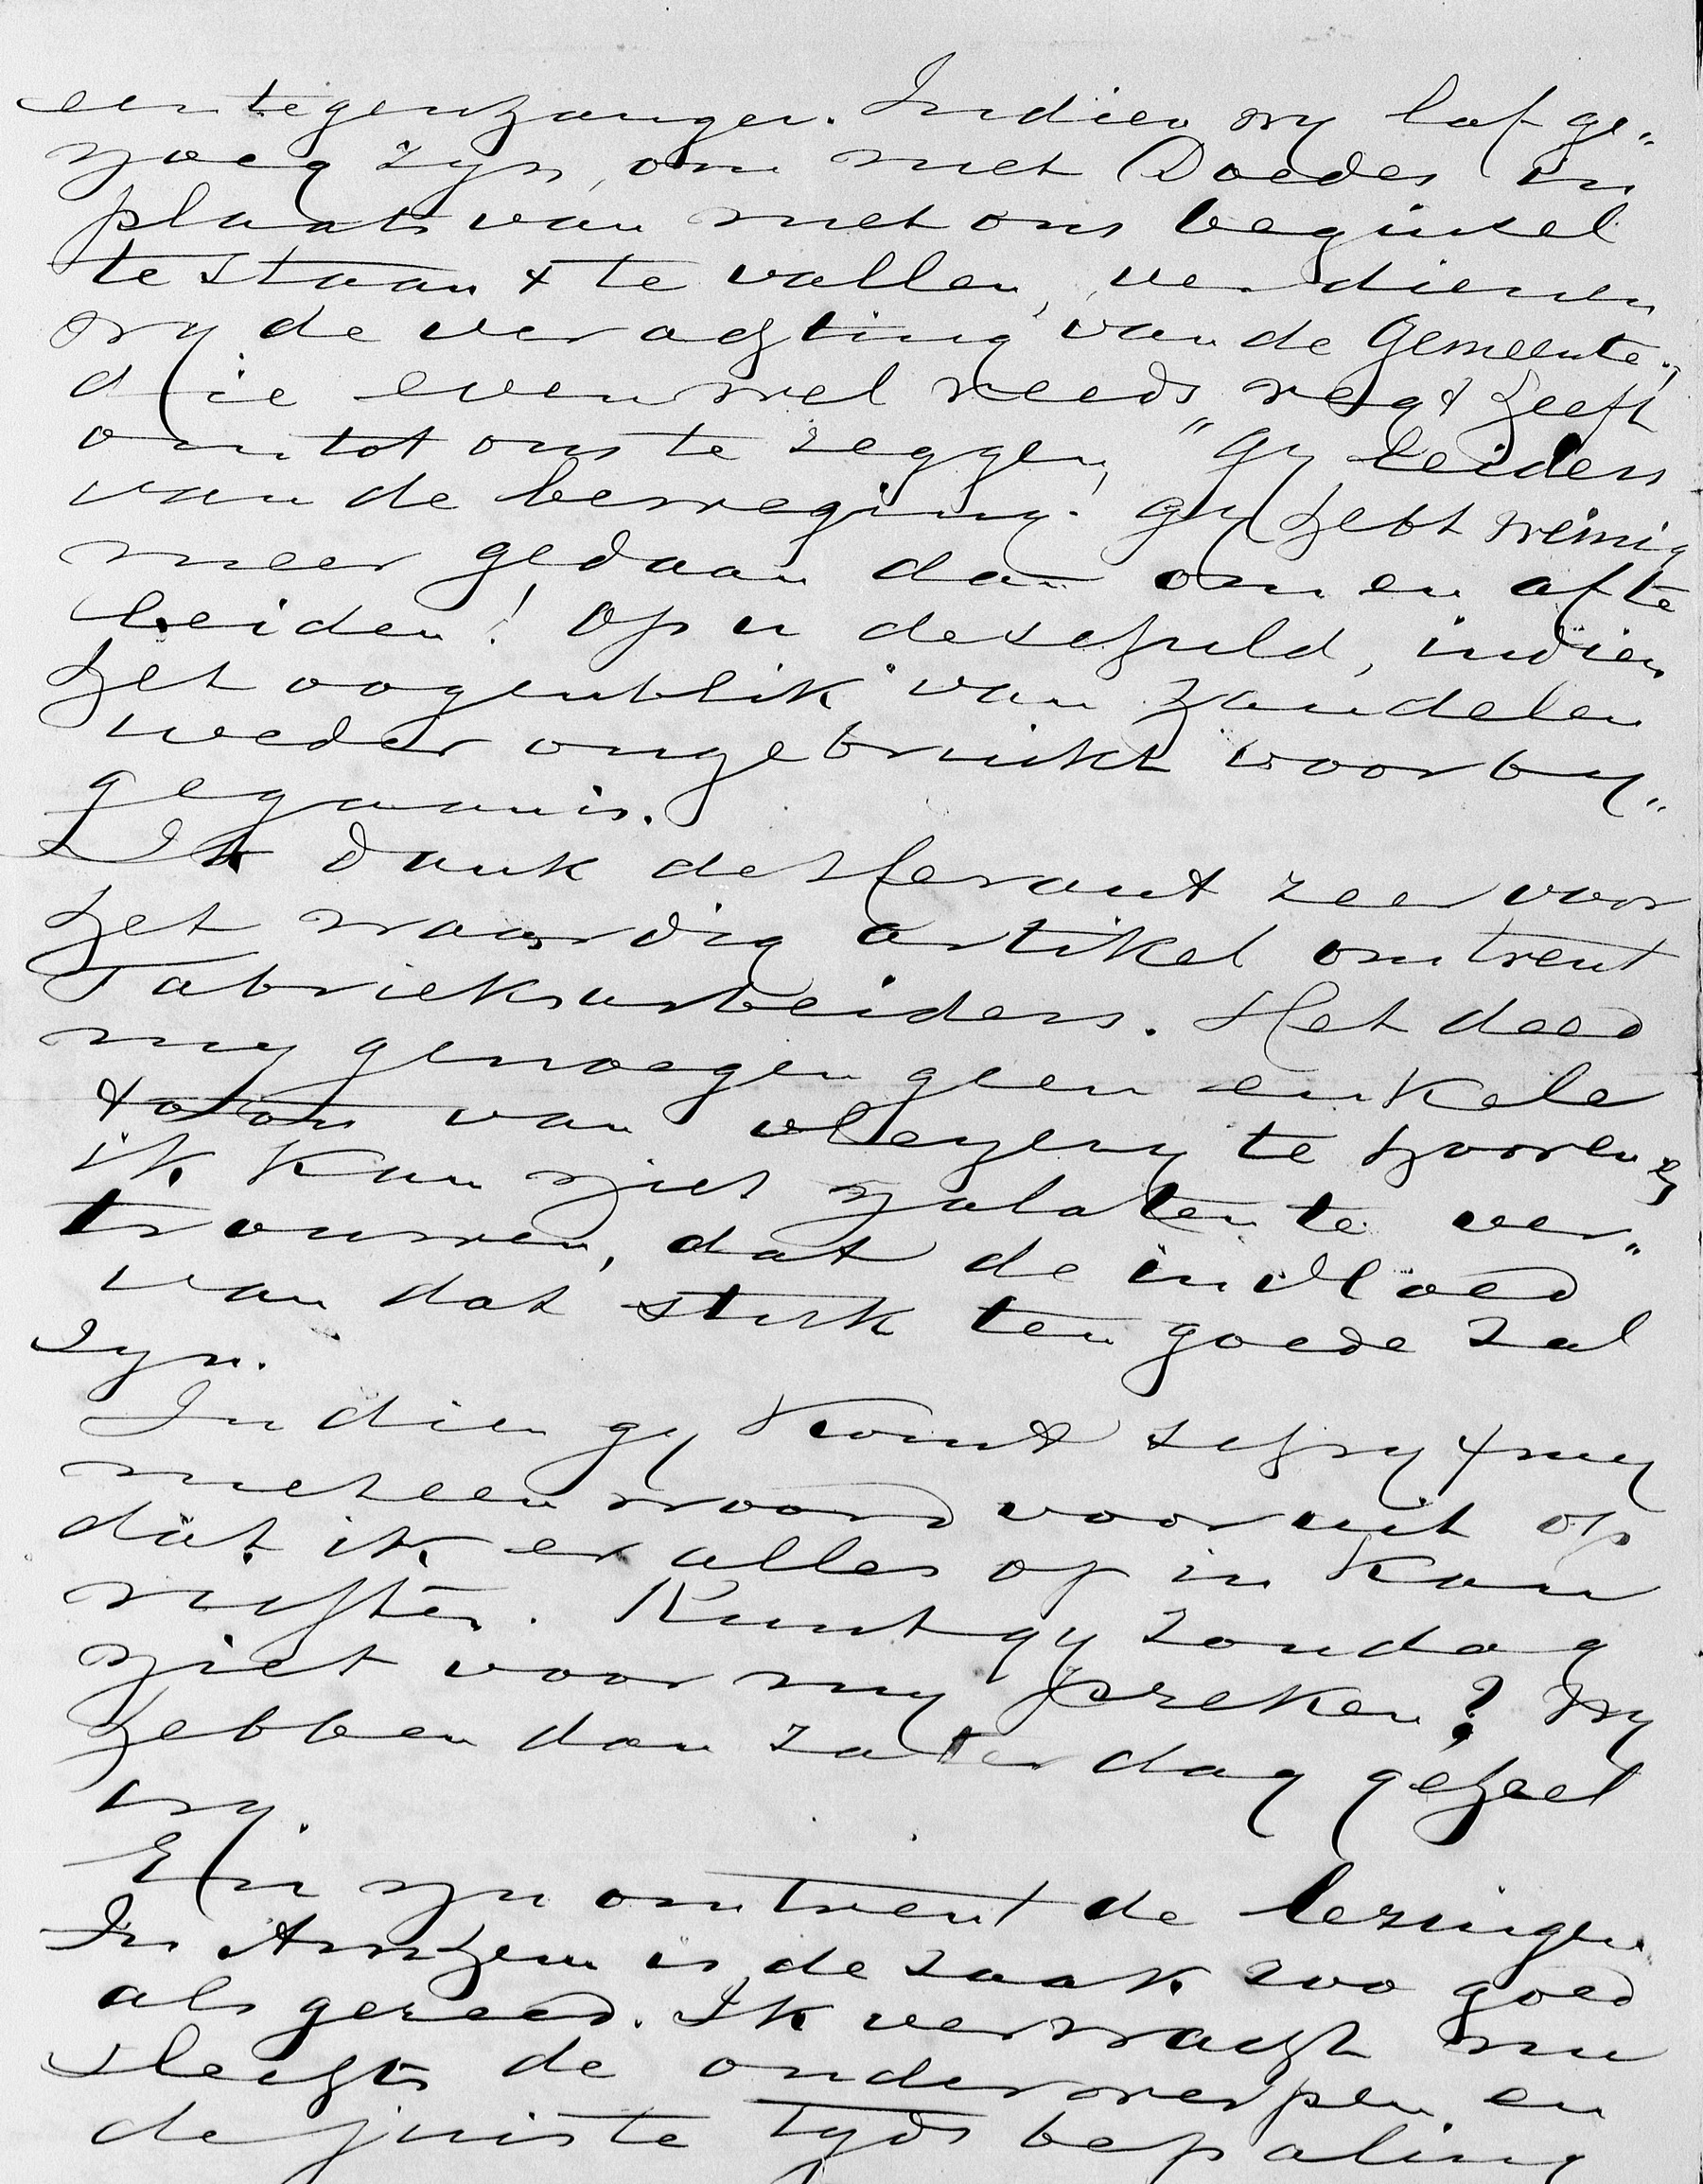 een tegenhanger. Indien wy laf ge„
noeg zyn, om met Doedes in
plaats van met ons beginsel
te staan & te vallen, verdienen
wy de verachting van de Gemeente,
die evenwel reeds regt heeft
om tot ons te zeggen, "Gy leiders
van de beweging. gy hebt weinig
meer gedaan dan om en af te
leiden! Op u de schuld, indien
het oogenblik van handelen
weder ongebruikt voorby„
gegaan is.
Ik dank de Heraut zeer voor
het waardig artikel omtrent
Fabrieksarbeiders. Het deed
my genoegen geen enkele
toon van vleyery te hooren, en
ik kan niet nalaten te ver„
trouwen, dat de invloed
van dat stuk ten goede zal
zyn.
Indien gy komt schryf my
met een woord vooruit op
dat ik er alles op in kan
richten. Kunt gy zondag
niet voor my preken? Wy
hebben dan zaterdag geheel
vry.
En nu omtrent de lezingen.
In Arnhem is de zaak zoo goed
als gereed. Ik verwacht nu
slechts de onderwerpen en
de juiste tyds bepaling